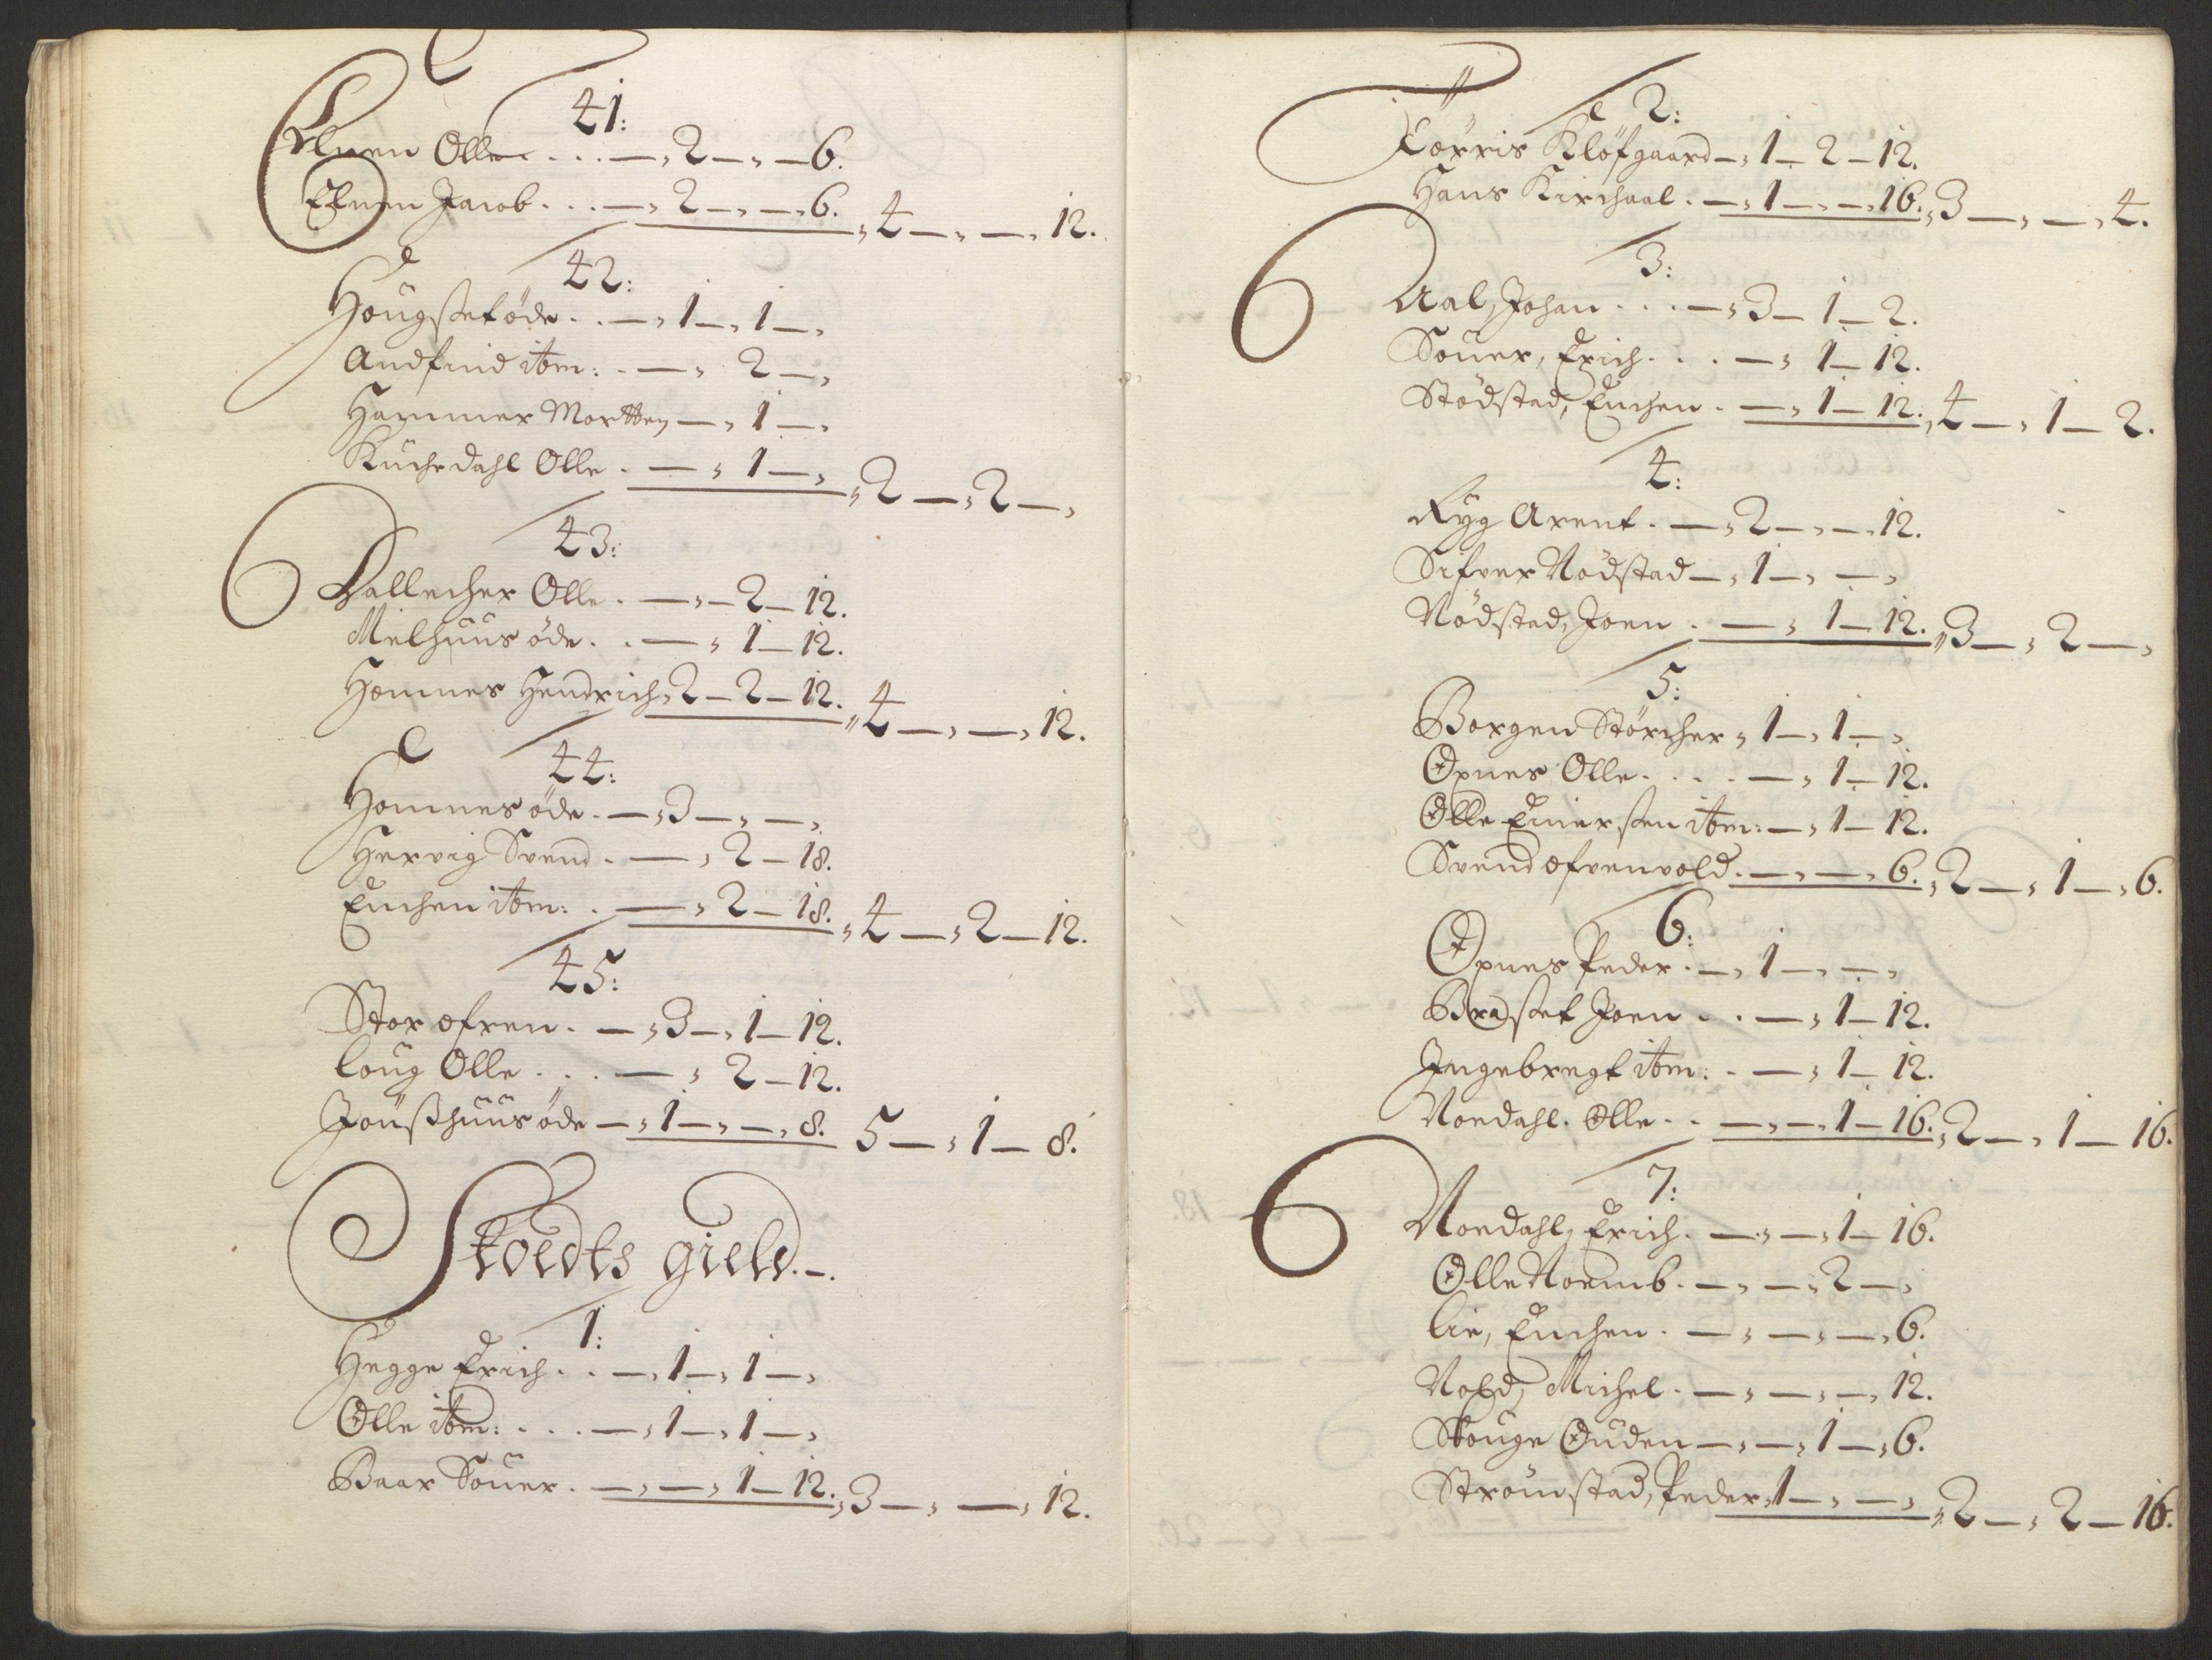 41:
Elnen Olle . . . — „ 2 — „ — 6.
Elnen Jacob . . . — „ 2 — „ — „ 6. „ 4 — „ — „ 12.
42:
Hougsæt öde . . — „ 1 — „ 1 — „
Andfind itm: . — „ 2 — „
Hammer Mortten — „ 1 — „
Kuchedahl Olle . — „ 1 — „ „ 2 — „ 2 — „
43:
Ballecher Olle . — „ — 2 — 12.
Melhuus öde . . — „ 1 — 12.
Homnes Hendrich „ 2 — 2 — 12. „ 4 — „ — „ 12.
44:
Homnes öde . — „ 3 — „ — „
Hervig Svend . — „ 2 — 18.
Enchen itm: . — „ 2 — 18. „ 4 — „ 2 — 12.
45:
Stor øfren . — „ 3 — „ 1 — 12.
Loug Olle . . . — „ 2 — 12.
Joußhuus öde — „ 1 — „ — „ 8. 5 — „ 1 — 8.
Stoedts gield . —.
1:
Hegge Erich . . — „ 1 — „ 1 — „
Olle itm: . . . — „ 1 — „ 1 — „
Baar Souer . — „ — „ 1 — 12. „ 3 — „ — „ 12.
2:
Törris Klöfgaard — „ 1 — 2 — 12.
Hans Kirchaal . — „ 1 — „ — „ 16. „ 3 — „ — „ 4.
3:
Aal, Johan . . . — „ 3 — 1 — 2.
Souer, Erich . . . — „ 1 — 12.
Stödstad, Enchen . — „ 1 — 12. „ 4 — „ 1 — 2.
4:
Ryg Arent . — „ 2 — „ — „ 12.
Sifver Nödstad — „ 1 — „ — „
Nödsted, Joen . — „ 1 — 12. „ 3 — „ 2 — „
5:
Borgen Störcher „ 1 — „ 1 — „
Opnes Olle . . . . — „ 1 — 12.
Olle Einersen itm: — „ 1 — 12.
Svend øfvenvold . — „ — „ 6. „ 2 — „ 1 — „ 6.
6:
Opnes Peder . — „ 1 — „ — „
Bradset Joen . . — „ 1 — 12.
Ingebregt itm: . — „ 1 — 12.
Noedahl. Olle . . — „ — „ 1 — 16. „ 2 — „ 1 — 16.
7:
Noedahl, Erich . — „ — „ 1 — 16.
Olle Noemb . — „ — „ 2 — „
Lie, Enchen . — „ — „ — „ 6.
Vold, Michel . — „ — „ — „ 12.
Skouge Ouden — „ — „ 1 — „ 6.
Strömstad, Peder „ 1 — „ — „ „ 2 — „ 2 — 16.